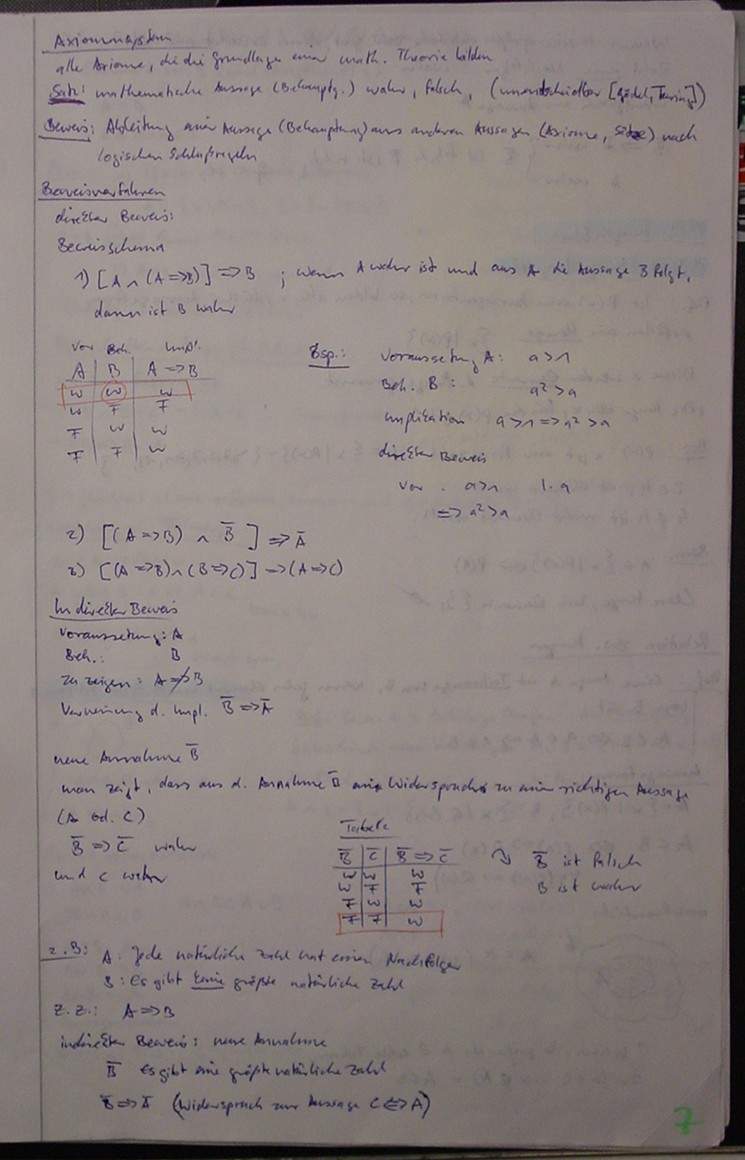 Axiomensystem
alle Axiome, die die Grundlage einer math. Theorie bilden
Satz: mathematische Aussage (Behauptg.) wahr, falsch, (unentscheidbar [Gödel, Turing])
Beweis: Ableitung einer Aussage (Behauptung) aus anderen Aussagen (Axiome, Sätze) nach
logischen Schlußregeln
Beweisverfahren
direkter Beweis:
Beweisschema
1) [A ∧ (A => B)] => B ; wenn A wahr ist und aus A die Aussage B folgt,
dann ist B wahr
Vor Beh. Impl.
A | B | A => B
w | w | w
w | F | F
F | w | w
F | F | w
Bsp.: Voraussetzung A: a>1
Beh. B: a² > a
Implikation a>1 => a² > a
direkter Beweis
Vor. a>1 |·a
=> a² > a
2) [(A => B) ∧ B̅] => A̅
3) [(A => B) ∧ (B => C)] => (A => C)
Indirekter Beweis
Voraussetzung: A
Beh.: B
zu zeigen: A => B
Verneinung d. Impl. B̅ => A̅
neue Annahme B̅
man zeigt, dass aus d. Annahme B̅ ein Widerspruch zu einer richtigen Aussage
(A od. C)
B̅ => C̅ wahr
und C wahr
Tabelle
B̅ | C̅ | B̅ => C̅
w | w | w
w | F | F
F | w | w
F | F | w
B̅ ist falsch
B ist wahr
z.B.: A: Jede natürliche Zahl hat einen Nachfolger
B: es gibt keine größte natürliche Zahl
z.z.: A => B
indirekter Beweis: neue Annahme
B̅ es gibt eine größte natürliche Zahl
B̅ => A̅ (Widerspruch zur Aussage C <=> A)
7